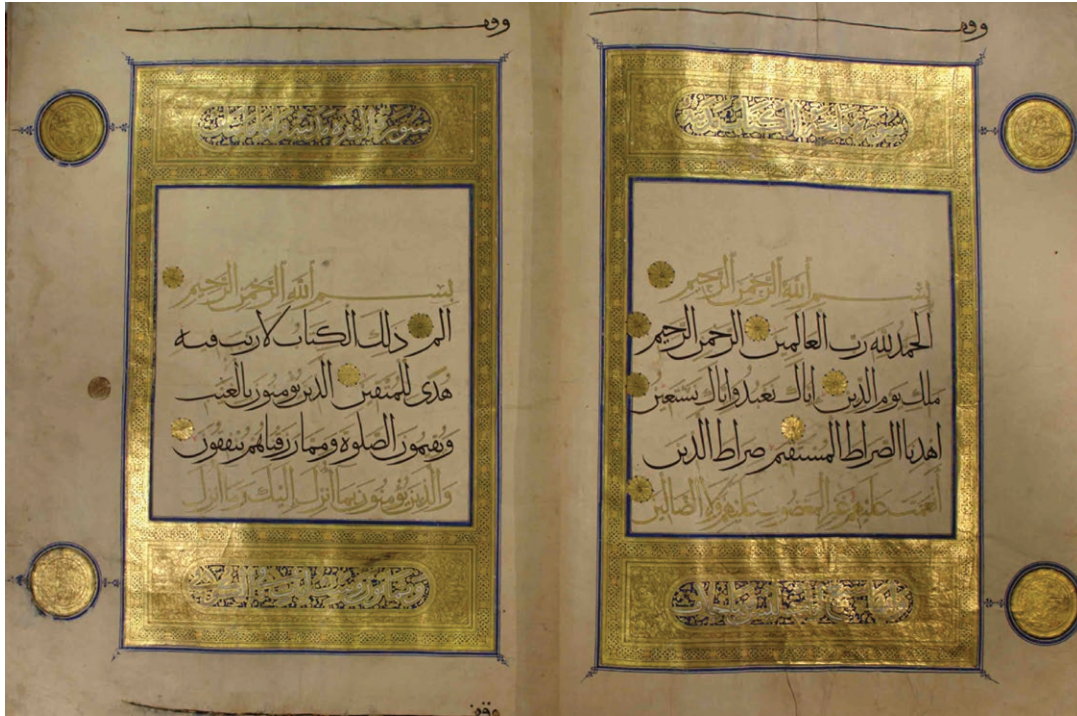 وقف
سورة فاتحة الكتاب
بسم الله الرحمن الرحيم
الحمد لله رب العالمين الرحمن الرحيم
ملك يوم الدين اياك نعبد واياك نستعين
اهدنا الصراط المستقيم صراط الذين
انعمت عليهم غير المغضوب عليهم ولا الضالين
وقف
سورة البقرة
بسم الله الرحمن الرحيم
الم ذلك الكتاب لا ريب فيه
هدى للمتقين الذين يومنون بالغيب
ويقيمون الصلوة ومما رزقناهم ينفقون
والذين يومنون بما انزل اليك وما انزل
وقف